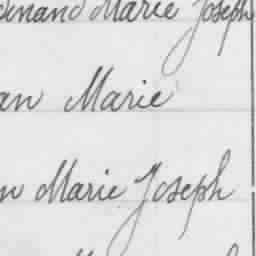 dinand Marie Joseph
an Marie
n Marie Joseph